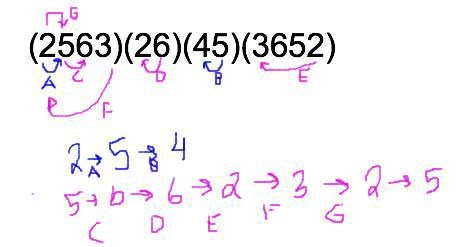 G
(2563)(26)(45)(3652)
A C D B E
F
2 → 5 → 4
A B
5 → 6 → 6 → 2 → 3 → 2 → 5
C D E F G